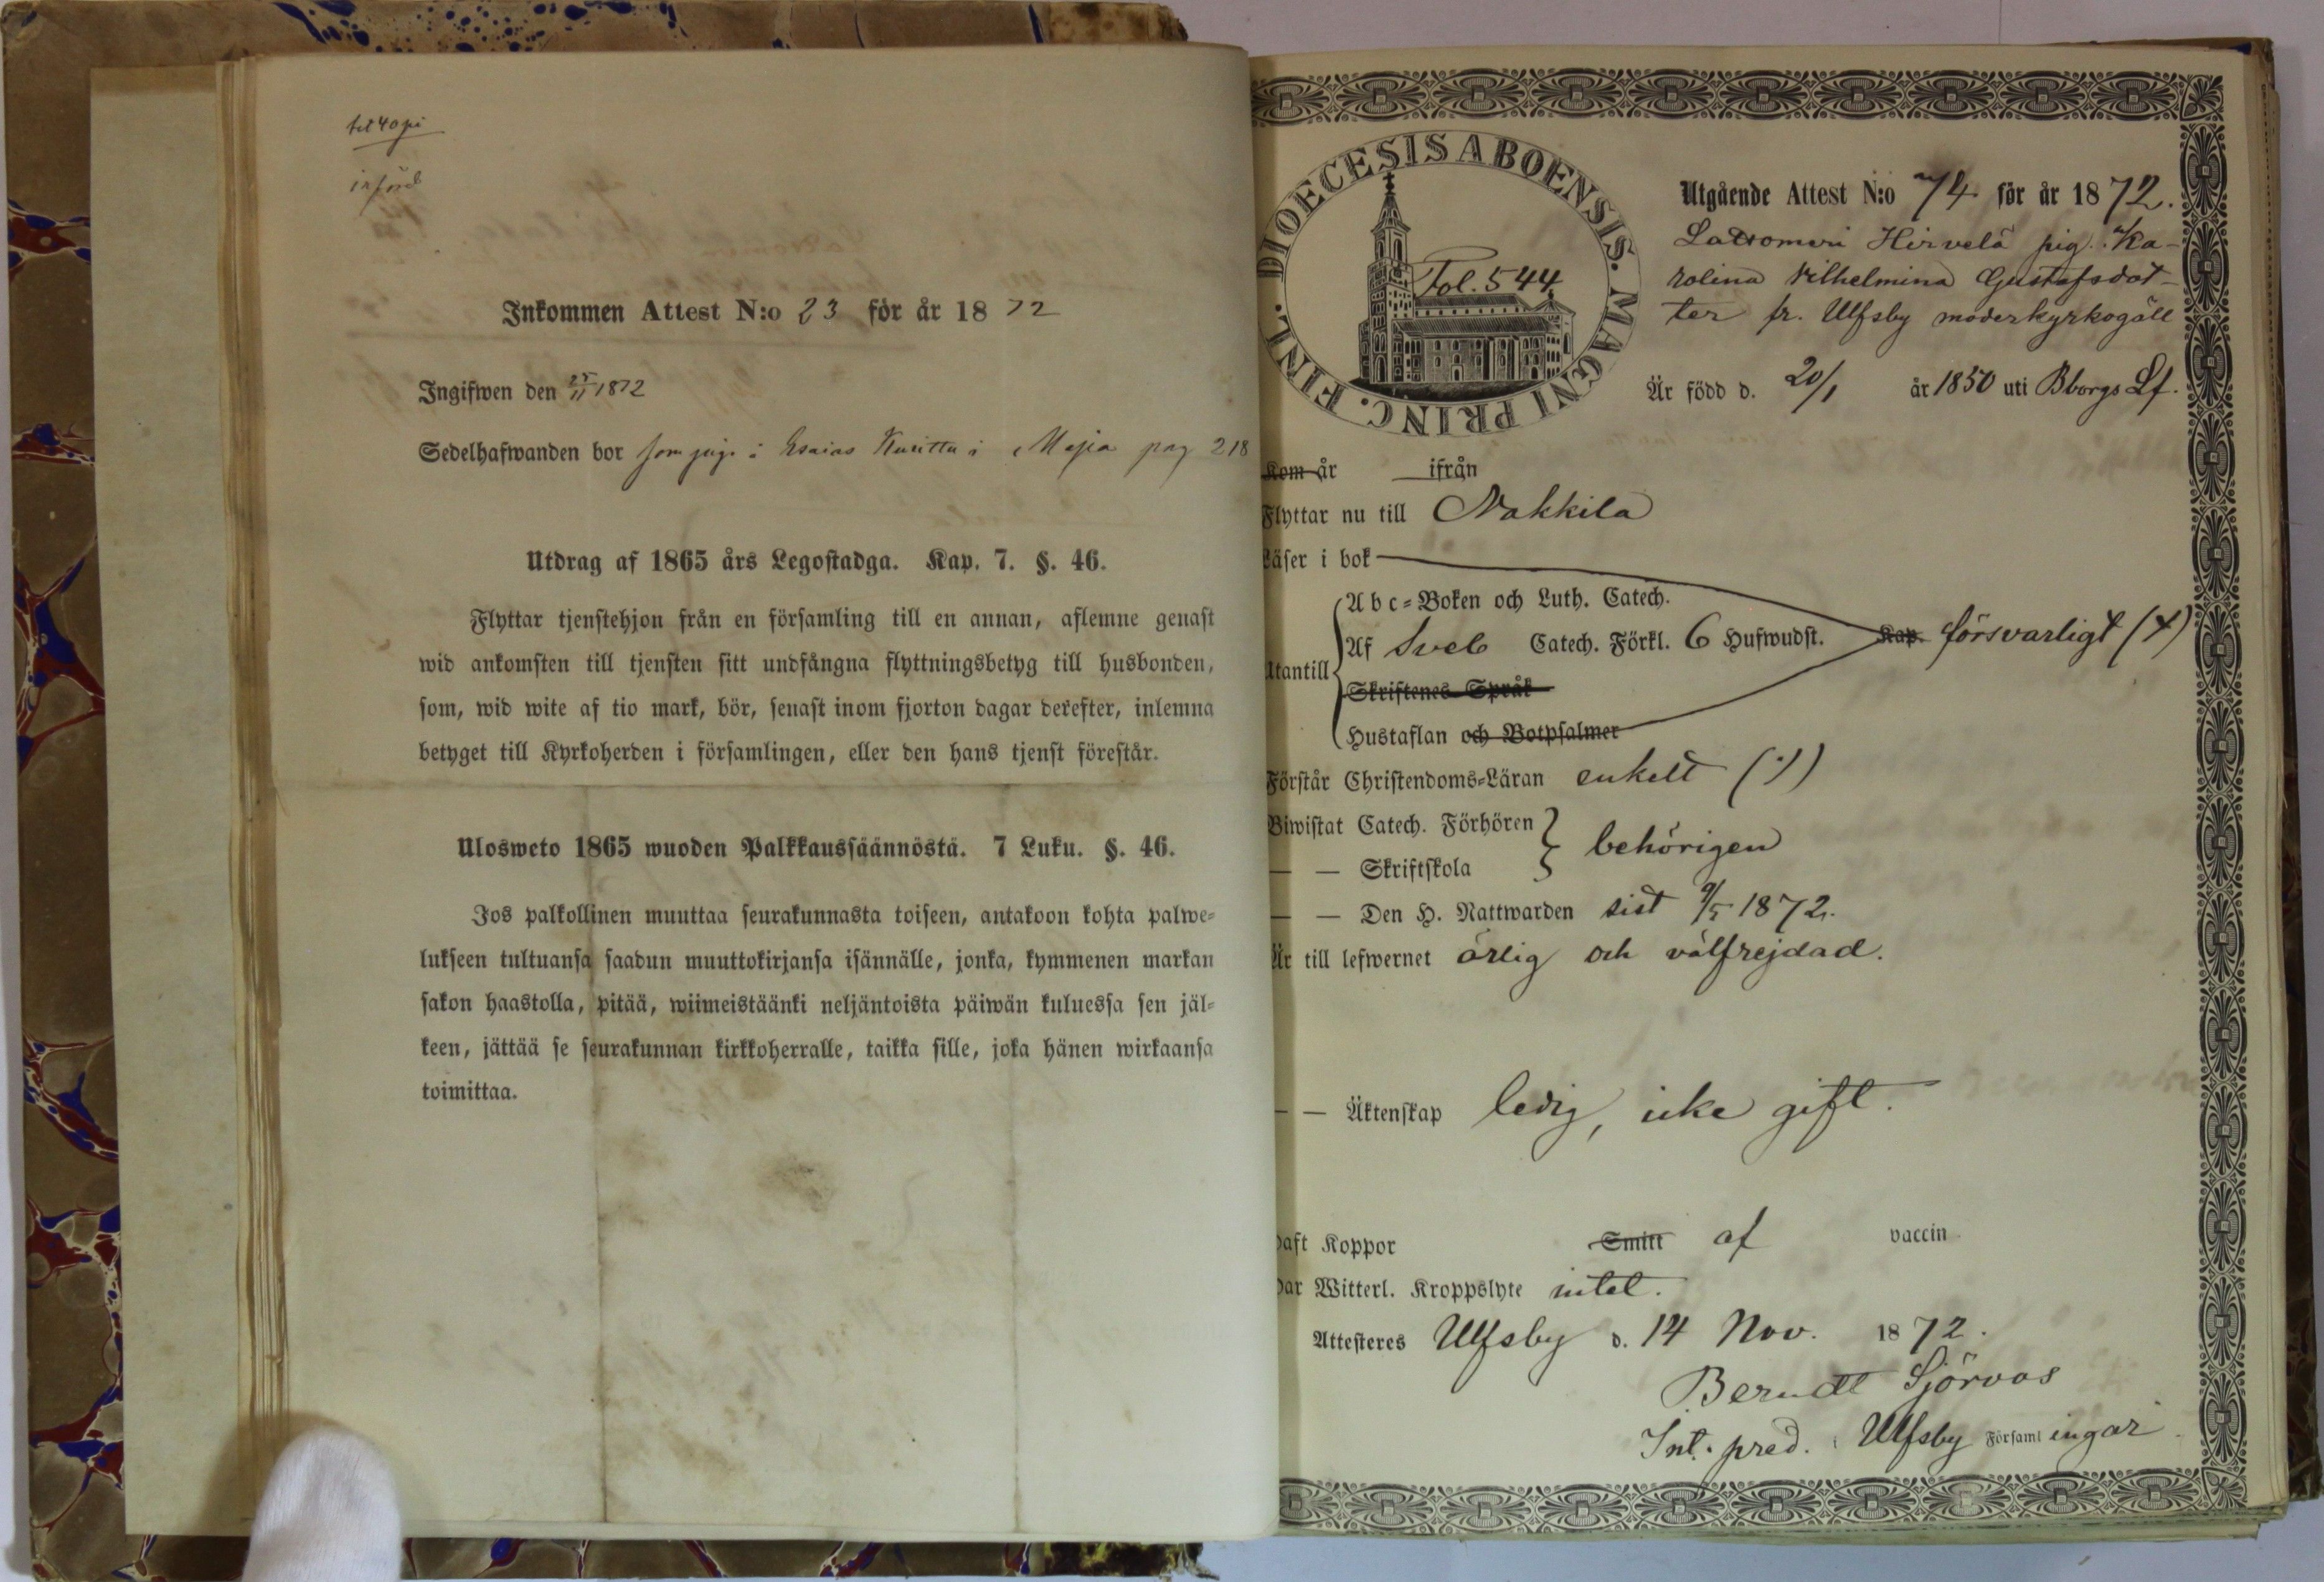 bet 40 pi
införd
Inkommen Attest N:o 23 för år 1872
Ingifwen den 25/11 1872
Sedelhafwanden bor som pige i Esaias Kuritta i Majia pag 218
Utdrag af 1865 års Legostadga. Kap. 7. §. 46.
Flyttar tjenstehjon från en församling till en annan, aflemne genast
wid ankomsten till tjensten sitt undfångna flyttningsbetyg till husbonden,
som, wid wite af tio mark, bör, senast inom fjorton dagar derefter, inlemna
betyget till Kyrkoherden i församlingen, eller den hans tjenst förestår.
Ulosweto 1865 wuoden Palkkaussäännöstä. 7 Luku. §. 46.
Jos palkollinen muuttaa seurakunnasta toiseen, antakoon kohta palwe=
lukseen tultuansa saadun muuttokirjansa isännälle, jonka, kymmenen markan
sakon haastolla, pitää, wiimeistäänki neljäntoista päiwän kuluessa sen jäl=
keen, jättää se seurakunnan kirkkoherralle, taikka sille, joka hänen wirkaansa
toimittaa.
DIOECESIS ABOENSIS. MAGNI PRINC. FINL.
Fol. 544
Utgående Attest N:o 74 för år 1872.
Lattomeri Hirvelä pig. Ka-
rolina Vilhelmina Gustafsdot-
ter fr. Ulfsby moderkyrkogäll
Är född d. 20/1 år 1850 uti Bborgs Lf.
Kom år ifrån
Flyttar nu till Nakkila
Läser i bok
Abc=Boken och Luth. Catech.
Utantill Af Sveb Catech. Förkl. 6 Hufwudst. Kap. försvarligt (+)
Skriftenes Språk
Hustaflan och Botpsalmer
Förstår Christendoms=Läran enkelt (/)
Biwistat Catech. Förhören
— — Skriftskola behörigen
— — Den H. Nattwarden sist 9/5 1872.
Är till lefwernet ärlig och välfrejdad.
— — Äktenskap ledig, icke gift.
Haft Koppor Smitt af vaccin
Har Witterl. Kroppslyte intet.
Attesteres Ulfsby d. 14 Nov. 1872.
Berndt Sjörvos
Int. pred. i Ulfsby Församlingar